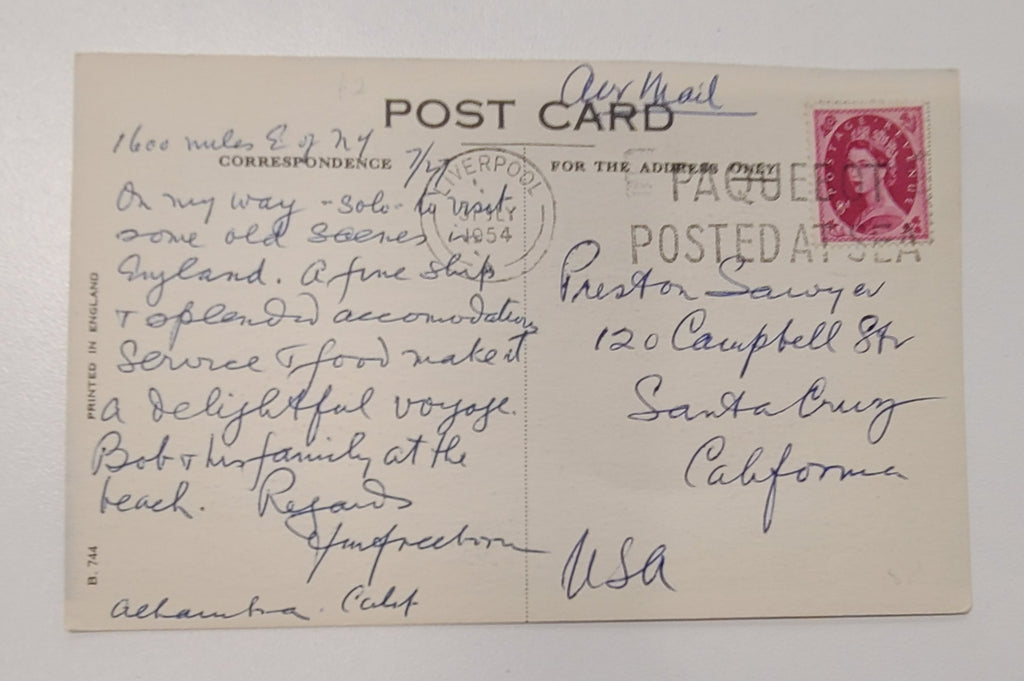 Air Mail
POST CARD
1600 miles E of NY
7/27
CORRESPONDENCE
FOR THE ADDRESS ONLY
LIVERPOOL
JLY
1954
PAQUEBOT
POSTED AT SEA
POSTAGE REVENUE
On my way - solo - to visit
some old scenes in
England. A fine ship
+ splendid accomodations
Service & food make it
a delightful voyage.
Bob + his family at the
beach. Regards
Freeborn
Alhambra. Calif
Preston Sawyer
120 Campbell Str
Santa Cruz
California
USA
PRINTED IN ENGLAND
B. 744